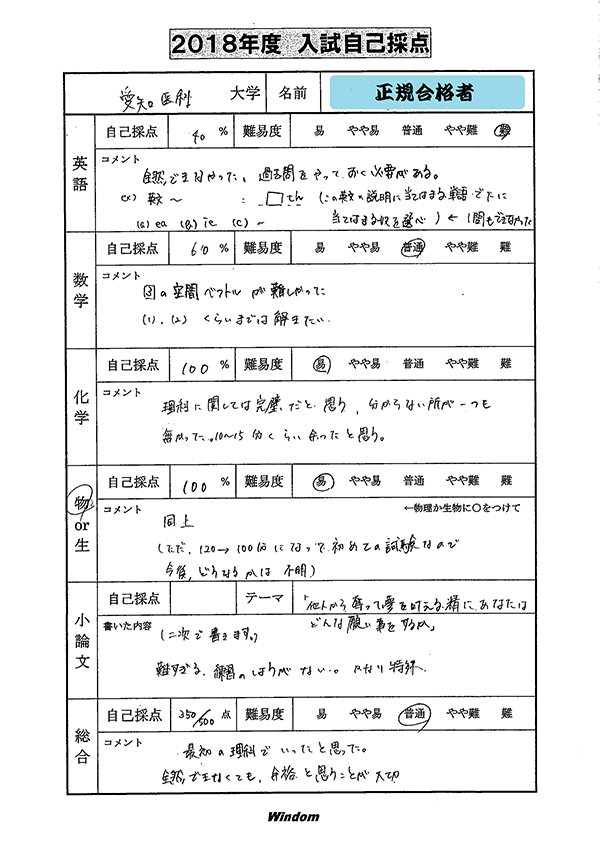 2018年度 入試自己採点
愛知医科 大学 名前 正規合格者
英語
自己採点 40 % 難易度 易 やや易 普通 やや難 難
コメント
全然できなかった。過去問をやっておく必要がある。
ex) 英文 ~ : □でん (この英文の説明に当てはまる単語で
(a) ea (b) ie (c) ~ 当てはまる を選べ) ← 1問もできなかった
数学
自己採点 60 % 難易度 易 やや易 普通 やや難 難
コメント
③の空間ベクトルが難しかった
(1), (2) くらいまでは解きたい
化学
自己採点 100 % 難易度 易 やや易 普通 やや難 難
コメント
理科に関しては完璧だと思う, 分からない所が一つも
無かった。10~15分くらい余ったと思う。
物or生
自己採点 100 % 難易度 易 やや易 普通 やや難 難
コメント ←物理か生物に○をつけて
同上
(ただ, 120→100分になって初めての試験なので
今後, どうなるかは不明)
小論文
自己採点 テーマ 「他人から奪って夢を叶える精に, あなたは
どんな願い事をするか」
書いた内容
(二次で書きます。)
難すぎる。練習のしようがない。かなり特殊
総合
自己採点 350/500 点 難易度 易 やや易 普通 やや難 難
コメント
最初の理科でいったと思った。
全然できなくても, 合格と思うことが大切
Windom